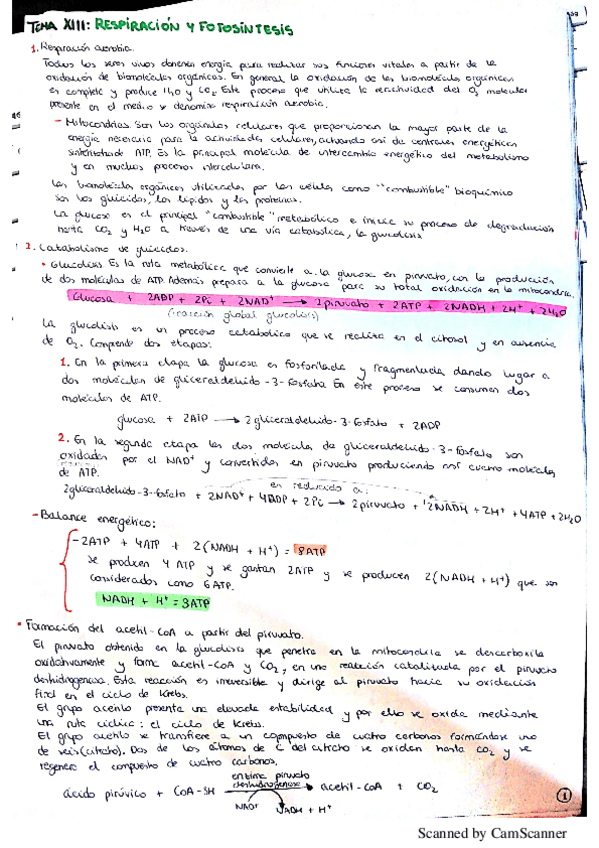 TEMA XIII: RESPIRACIÓN Y FOTOSÍNTESIS
1. Respiración aerobia.
Todos los seres vivos obtienen energía para realizar sus funciones vitales a partir de la
oxidación de biomoléculas orgánicas. En general la oxidación de las biomoléculas orgánicas
es completa y produce H2O y CO2. Este proceso que utiliza la reactividad del O2 molecular
presente en el medio se denomina respiración aerobia.
- Mitocondrias. Son los orgánulos celulares que proporcionan la mayor parte de la
energía necesaria para la actividad celular, actuando así de centrales energéticas
sintetizando ATP. Es la principal molécula de intercambio energético del metabolismo
y en muchos procesos intercelulares.
Las biomoléculas orgánicas utilizadas por las células como "combustible" bioquímico
son los glúcidos, los lípidos y las proteínas.
La glucosa es el principal "combustible" metabólico e inicia su proceso de degradación
hasta CO2 y H2O a través de una vía catabólica, la glucólisis
2. Catabolismo de glúcidos.
• Glucólisis. Es la ruta metabólica que convierte a la glucosa en piruvato, con la producción
de dos moléculas de ATP. Además prepara a la glucosa para su total oxidación en la mitocondria.
Glucosa + 2ADP + 2Pi + 2NAD+ → 2piruvato + 2ATP + 2NADH + 2H+ + 2H2O
(reacción global glucólisis)
La glucólisis es un proceso catabólico que se realiza en el citosol y en ausencia
de O2. Comprende dos etapas:
1. En la primera etapa la glucosa es fosforilada y fragmentada, dando lugar a
dos moléculas de gliceraldehído-3-fosfato. En este proceso se consumen dos
moléculas de ATP.
glucosa + 2ATP → 2 gliceraldehído-3-fosfato + 2ADP
2. En la segunda etapa las dos moléculas de gliceraldehído-3-fosfato son
oxidadas por el NAD+ y convertidas en piruvato produciendo así cuatro moléculas
de ATP.
es reducido a:
2gliceraldehído-3-fosfato + 2NAD+ + 4ADP + 2Pi → 2piruvato + 2NADH + 2H+ + 4ATP + 2H2O
- Balance energético:
-2ATP + 4ATP + 2(NADH + H+) = 8ATP
Se producen 4 ATP y se gastan 2ATP y se producen 2(NADH + H+) que son
considerados como 6ATP.
NADH + H+ = 3ATP
• Formación del acetil-CoA a partir del piruvato.
El piruvato obtenido en la glucólisis que penetra en la mitocondria se descarboxila
oxidativamente y forma acetil-CoA y CO2, en una reacción catalizada por el piruvato
deshidrogenasa. Esta reacción es irreversible y dirige al piruvato hacia su oxidación
final en el ciclo de Krebs.
El grupo acetilo presenta una elevada estabilidad y por ello se oxida mediante
una ruta cíclica: el ciclo de Krebs.
El grupo acetilo se transfiere a un compuesto de cuatro carbonos formándose uno
de seis (citrato). Dos de los átomos de C del citrato se oxidan hasta CO2 y se
regenera el compuesto de cuatro carbonos.
enzima piruvato
deshidrogenasa
ácido pirúvico + CoA-SH → acetil-CoA + CO2
NAD+ NADH + H+
1
Scanned by CamScanner